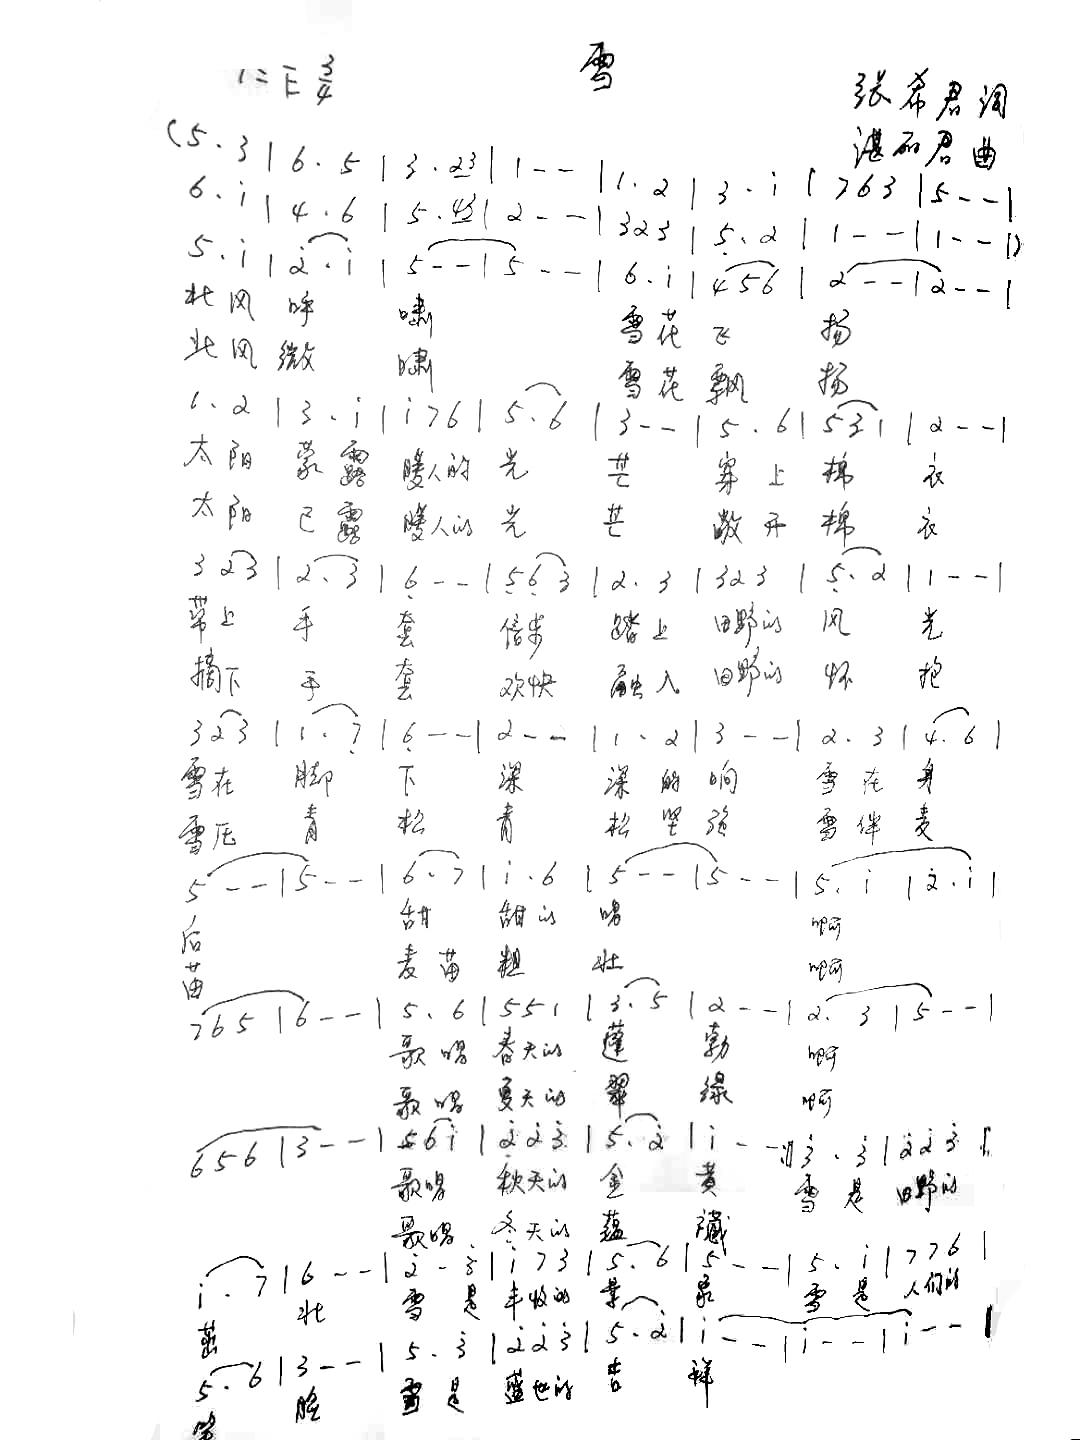 雪
1=E 3/4
张希君词
湛石君曲
(5·3|6·5|3·23|1--|1·2|3·i|763|5--|
6·i|4·6|5·43|2--|323|5·2|1--|1--|)
5·i|2·i|5--|5--|6·i|456|2--|2--|
北风呼啸 雪花飞扬
北风微啸 雪花飘扬
1·2|3·i|i76|5·6|3--|5·6|531|2--|
太阳蒙露暖人的光芒穿上棉衣
太阳已露暖人的光芒敞开棉衣
323|2·3|6--|563|2·3|323|5·2|1--|
带上手套信步踏上田野的风光
摘下手套欢快融入田野的怀抱
323|1·7|6--|2--|1·2|3--|2·3|4·6|
雪在脚下深深的响雪在身
雪压青松青松坚强雪伴麦
5--|5--|6·7|i·6|5--|5--|5·i|2·i|
后 甜甜的唱 啊
苗 麦苗粗壮 啊
765|6--|5·6|551|3·5|2--|2·3|5--|
歌唱春天的蓬勃 啊
歌唱夏天的翠绿 啊
656|3--|56i|223|5·2|i--:||3·3|223|
歌唱秋天的金黄 雪是田野的
歌唱冬天的蕴藏
i·7|6--|2·3|i73|5·6|5--|5·i|776|
茁壮雪是丰收的景象雪是人们的
5·6|3--|5·3|223|5·2|i--|i--|i--|
笑脸雪是蓝色的吉祥